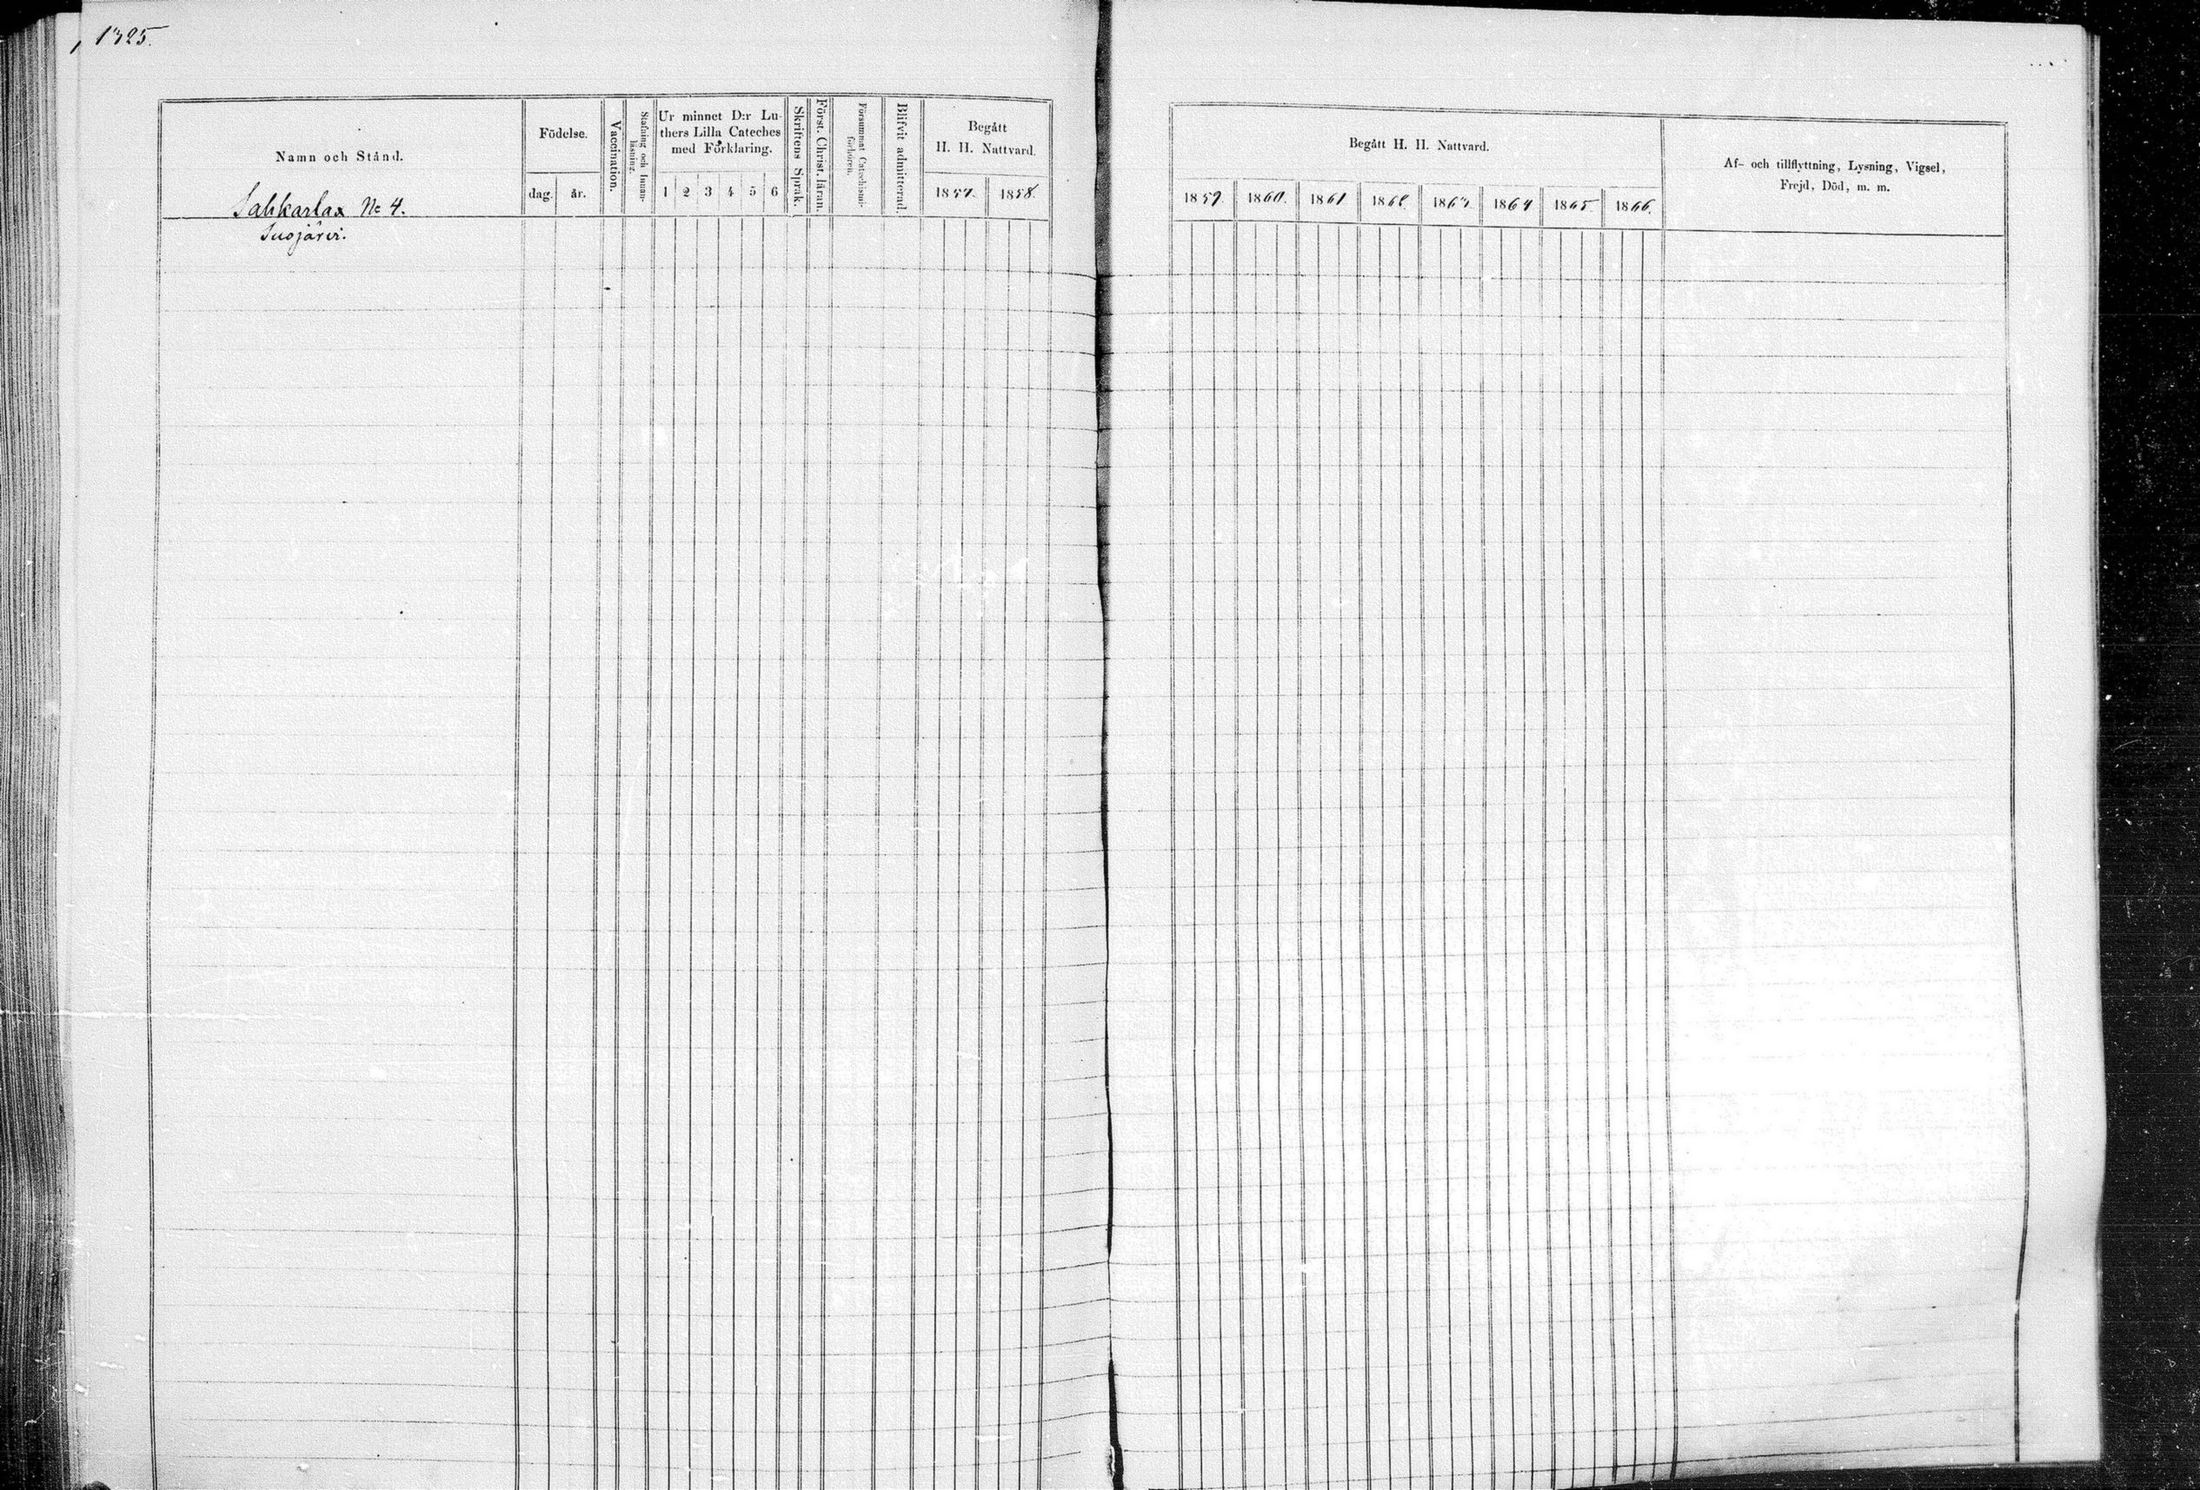 1325.
Namn och Stånd.
Sahkarlax No 4.
Suojärvi.
Födelse.
dag. år.
Vaccination.
Stafning och Innan-
läsning.
Ur minnet D:r Lu-
thers Lilla Cateches
med Förklaring.
1 2 3 4 5 6
Skriftens Språk.
Först. Christ. läran.
Försummat Catechismi-
förhören.
Blifvit admitterad.
Begått
H. H. Nattvard.
1857. 1858.
Begått H. H. Nattvard.
1859. 1860. 1861 1862. 1863. 1864 1865. 1866.
Af- och tillflyttning, Lysning, Vigsel,
Frejd, Död, m. m.